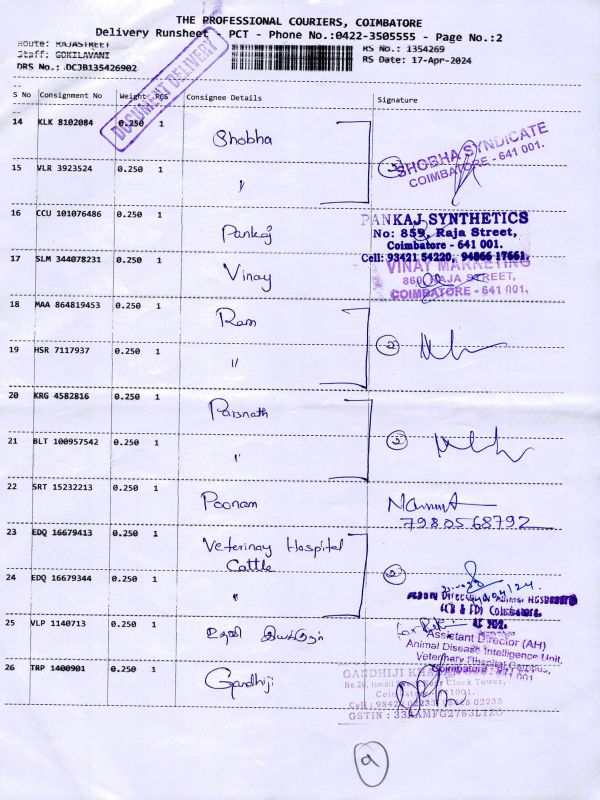 THE PROFESSIONAL COURIERS, COIMBATORE
Delivery Runsheet - PCT - Phone No.:0422-3505555 - Page No.:2
Route: RAJASTREET
RS No.: 1354269
Staff: GOKILAVANI
RS Date: 17-Apr-2024
DRS No.: DCJB135426902
DOCUMENT DELIVERY
S No Consignment No Weight PCS Consignee Details Signature
14 KLK 8102084 0.250 1 Shobha
SHOBHA SYNDICATE
COIMBATORE - 641 001.
15 VLR 3923524 0.250 1 "
16 CCU 101076486 0.250 1 Pankaj
PANKAJ SYNTHETICS
No: 859, Raja Street,
Coimbatore - 641 001.
Cell: 93421 54220, 94866 17661.
17 SLM 344078231 0.250 1 Vinay
VINAY MARKETING
860, RAJA STREET,
COIMBATORE - 641 001.
18 MAA 864819453 0.250 1 Ram
2
19 HSR 7117937 0.250 1 "
20 KRG 4582816 0.250 1 Parsnath
2
21 BLT 100957542 0.250 1 "
22 SRT 15232213 0.250 1 Poonam
7980568792
23 EDQ 16679413 0.250 1 Veterinay Hospital
Cattle
2
24 EDQ 16679344 0.250 1 "
25 VLP 1140713 0.250 1
Assistant Director (AH)
Animal Disease Intelligence Unit,
Veterinary Hospital Campus,
Coimbatore - 641 001
26 TRP 1400901 0.250 1 Gandhiji
GANDHIJI
Clock Tower,
GSTIN :
9